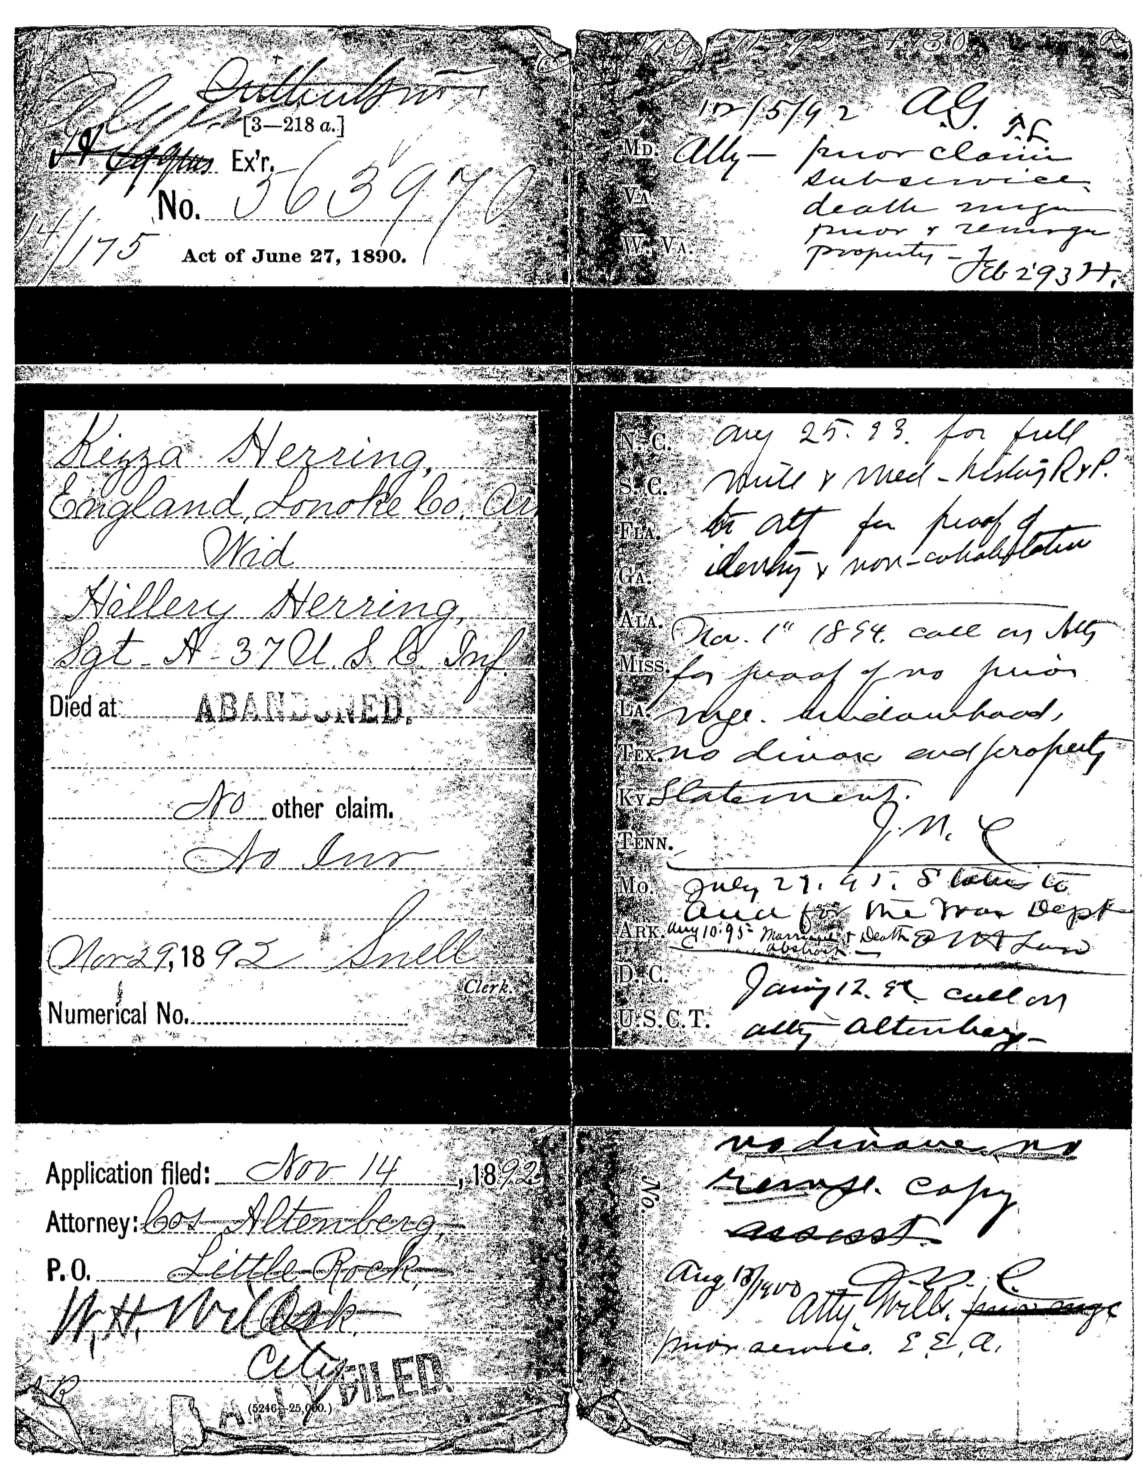 [3—218 a.]
Ex'r.
No. 563970
14/175
Act of June 27, 1890.
Kizza Herring,
England, Lonoke Co, Ar
Wid
Hillery Herring,
Sgt - A - 37 U. S. C. Inf
Died at:
ABANDONED.
No other claim.
No Inv
Nov 29, 1892 Snell
Clerk.
Numerical No.
Application filed: Nov 14, 1892
Attorney: Cos Altenberg,
P. O. Little Rock,
W. H. Wills
City
FILED.
(5246—25,000.)
12/5/92 A.G.
MD. Atty — prior claim
sub service,
VA. death
prior &
W. VA. property —
Feb 2 '93 H.
N. C. Aug 25. 93. for full
S. C. Mil & Med - history R & P.
FLA. to att for proof of
GA. identity & non-cohabitation
ALA. Nov. 1" 1894. call on Atty
MISS. for proof of no prior
LA. mge. widowhood,
TEX. no divorce and property
KY. Statement.
TENN.
MO. July 29. 95.
for the War Dept
ARK. Aug 10. 95 Marriage & Death
abstract —
D. C. 12. call on
U. S. C. T. atty Altenberg —
no divorce, no
copy
assist.
No.
Aug 13/1900
Atty Wills. prior mge
prior service. E. E. A.